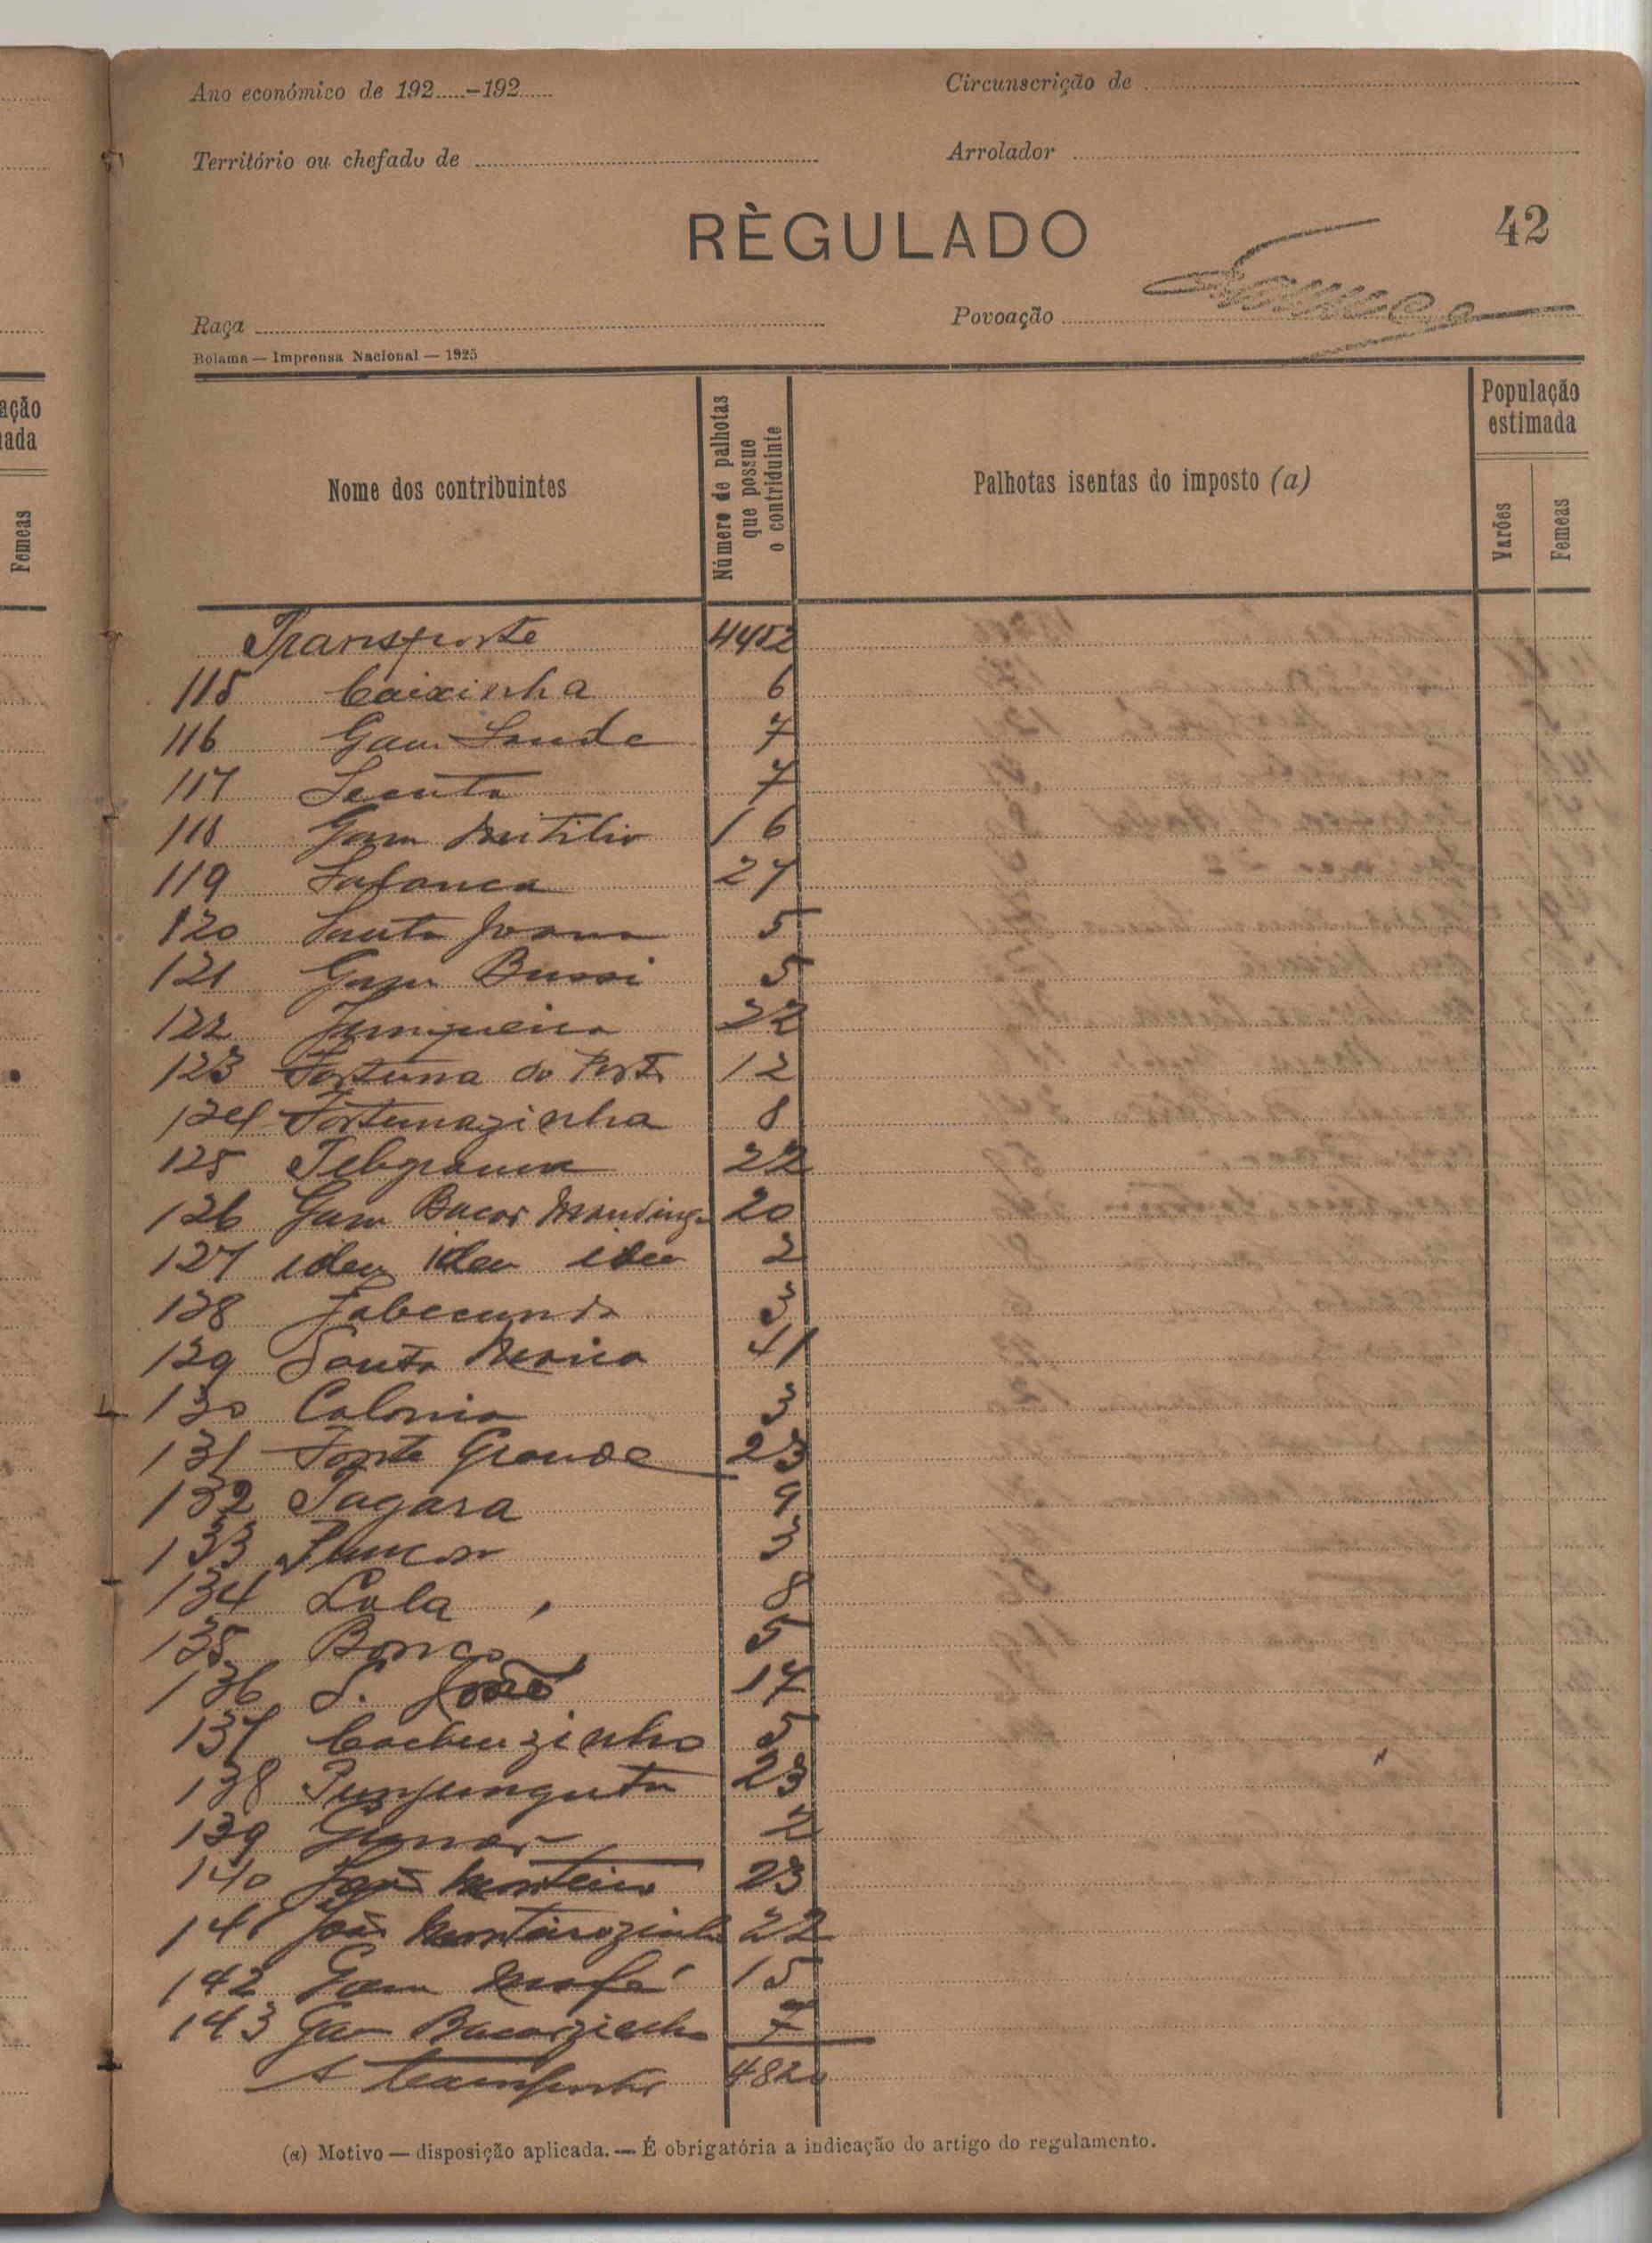 Ano económico de 192.....-192.....
Circunscrição de
Território ou chefado de
Arrolador
RÈGULADO
42
Raça
Povoação
Bolama — Imprensa Nacional — 1925
ação
ada
Femeas
Nome dos contribuintes
Número de palhotas
que possue
o contriduinte
Palhotas isentas do imposto (a)
População
estimada
Varões
Femeas
Transporte 4452
115 Caixinha 6
116 Gam Saude 7
117 Secuta 7
118 Gam 16
119 27
120 Santa Joana 5
121 Gam Bussi 5
122 Junqueira 22
123 Fortuna do Porto 12
124 Fortunazinha 8
125 Telegrama 22
126 Gam Bacar Mandinga 20
127 idem idem idem 2
128 Jabecunda 3
129 Santa Maria 41
130 Colonia 3
131 Fonte Grande 23
132 Tagara 9
133 3
134 Lala 8
135 Bonco 5
136 S. João 17
137 5
138 23
139 2
140 João Monteiro 23
141 João Monteirozinho 22
142 Gam Mafo 15
143 Gam Bacarzinho 7
A transportar 4820
(a) Motivo — disposição aplicada. — É obrigatória a indicação do artigo do regulamento.